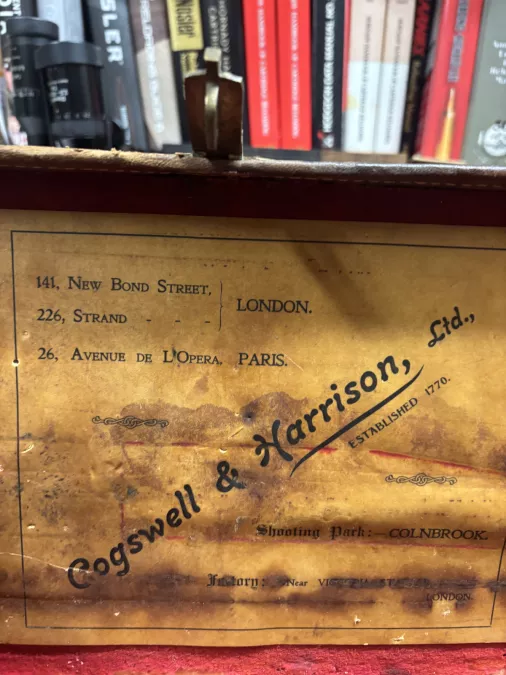 141, NEW BOND STREET,
226, STRAND - - -
LONDON.
26, AVENUE DE L'OPERA, PARIS.
Cogswell & Harrison, Ltd.,
ESTABLISHED 1770.
Shooting Park:- COLNBROOK.
Factory: Near
LONDON